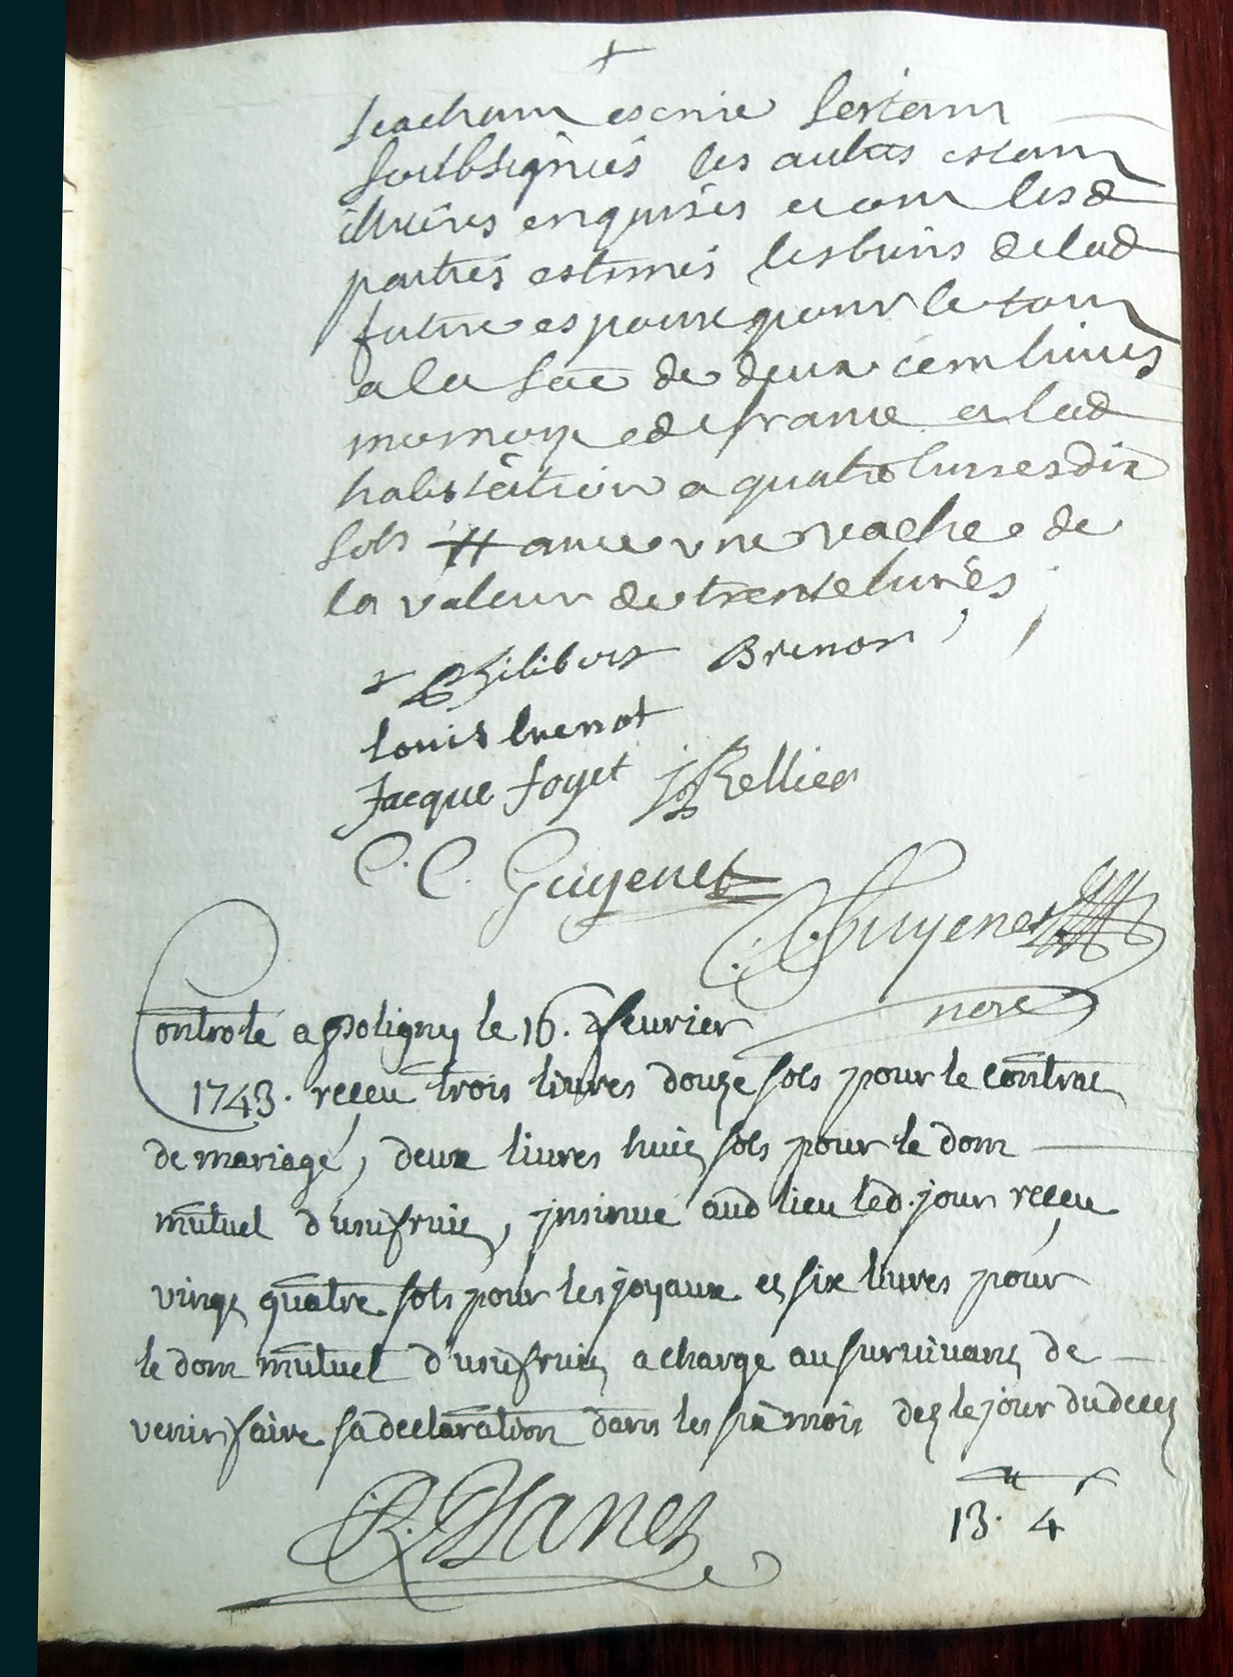 scacham escrire s'estam
soubsignés les autres estam
illitérés enquises et om lesd
parties estimés les biens delad
future espouse pour le tout
a la so̅e de deux cent livres
monnoye de france et lad
habitation a quatre livres dix
sols # avec une vache de
la valeur de trente livres
Philibert Brenot
louis brenot
Jacque foyet J Rellier
C. C. Guyenet
C. C. Guyenet
nore
Controlé a Poligny le 16. fevrier
1743. receu trois livres douze sols pour le contrat
de mariage, deux livres huit sols pour le dom
mutuel d'usufruit, jnsinué aud lieu led. jour receu
vingt quatre sols pour les joyaux et six livres pour
le dom mutuel d'usufruit a charge au survivant de
venir faire sa declaration dans les six mois dez le jour du decez
13. 4